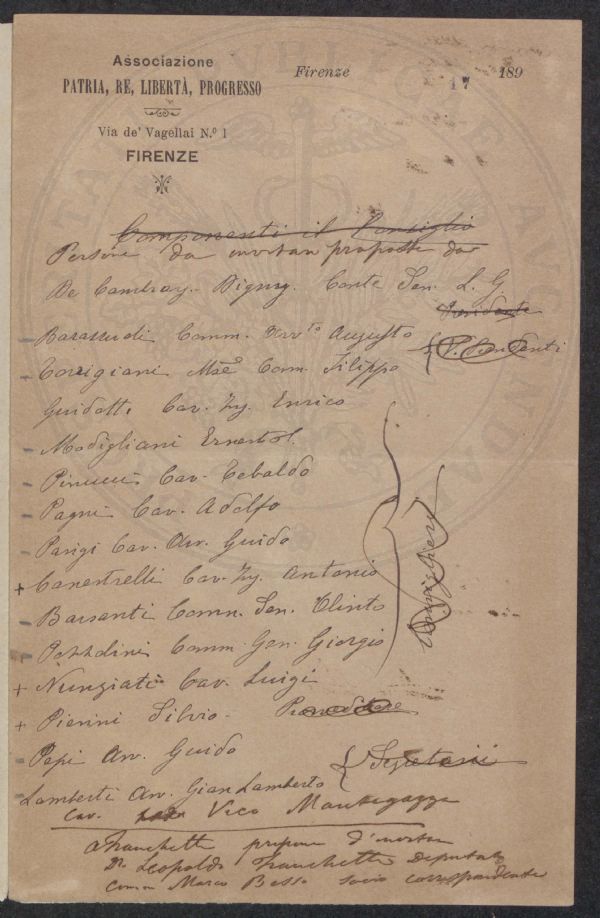 Associazione
PATRIA, RE, LIBERTÀ, PROGRESSO
Via de' Vagellai N.º 1
FIRENZE
Firenze 17 189
Componenti il Consiglio
Persone da invitare proposte da
De Cambray-Digny Conte Sen. L. G.
Presidente
Barazzuoli Comm. Avv.to Augusto
Torrigiani Mse Com. Filippo
V. Presidenti
Guidotti Cav. Ing. Enrico
Modigliani Ernesto
Pinucci Cav. Tebaldo
Pagni Cav. Adolfo
Parigi Cav. Avv. Guido
Canestrelli Cav. Ing. Antonio
Barsanti Comm. Sen. Olinto
Pozzolini Comm. Gen. Giorgio
Nunziati Cav. Luigi
Consiglieri
Pierini Silvio - Provveditore
Papi Avv. Guido
Lamberti Avv. Gian Lamberto
Segretarii
Cav. Vico Mantegazza
Franchetti propone d'invitare
Dr. Leopoldo Franchetti deputato
Comm Marco Besso socio corrispondente